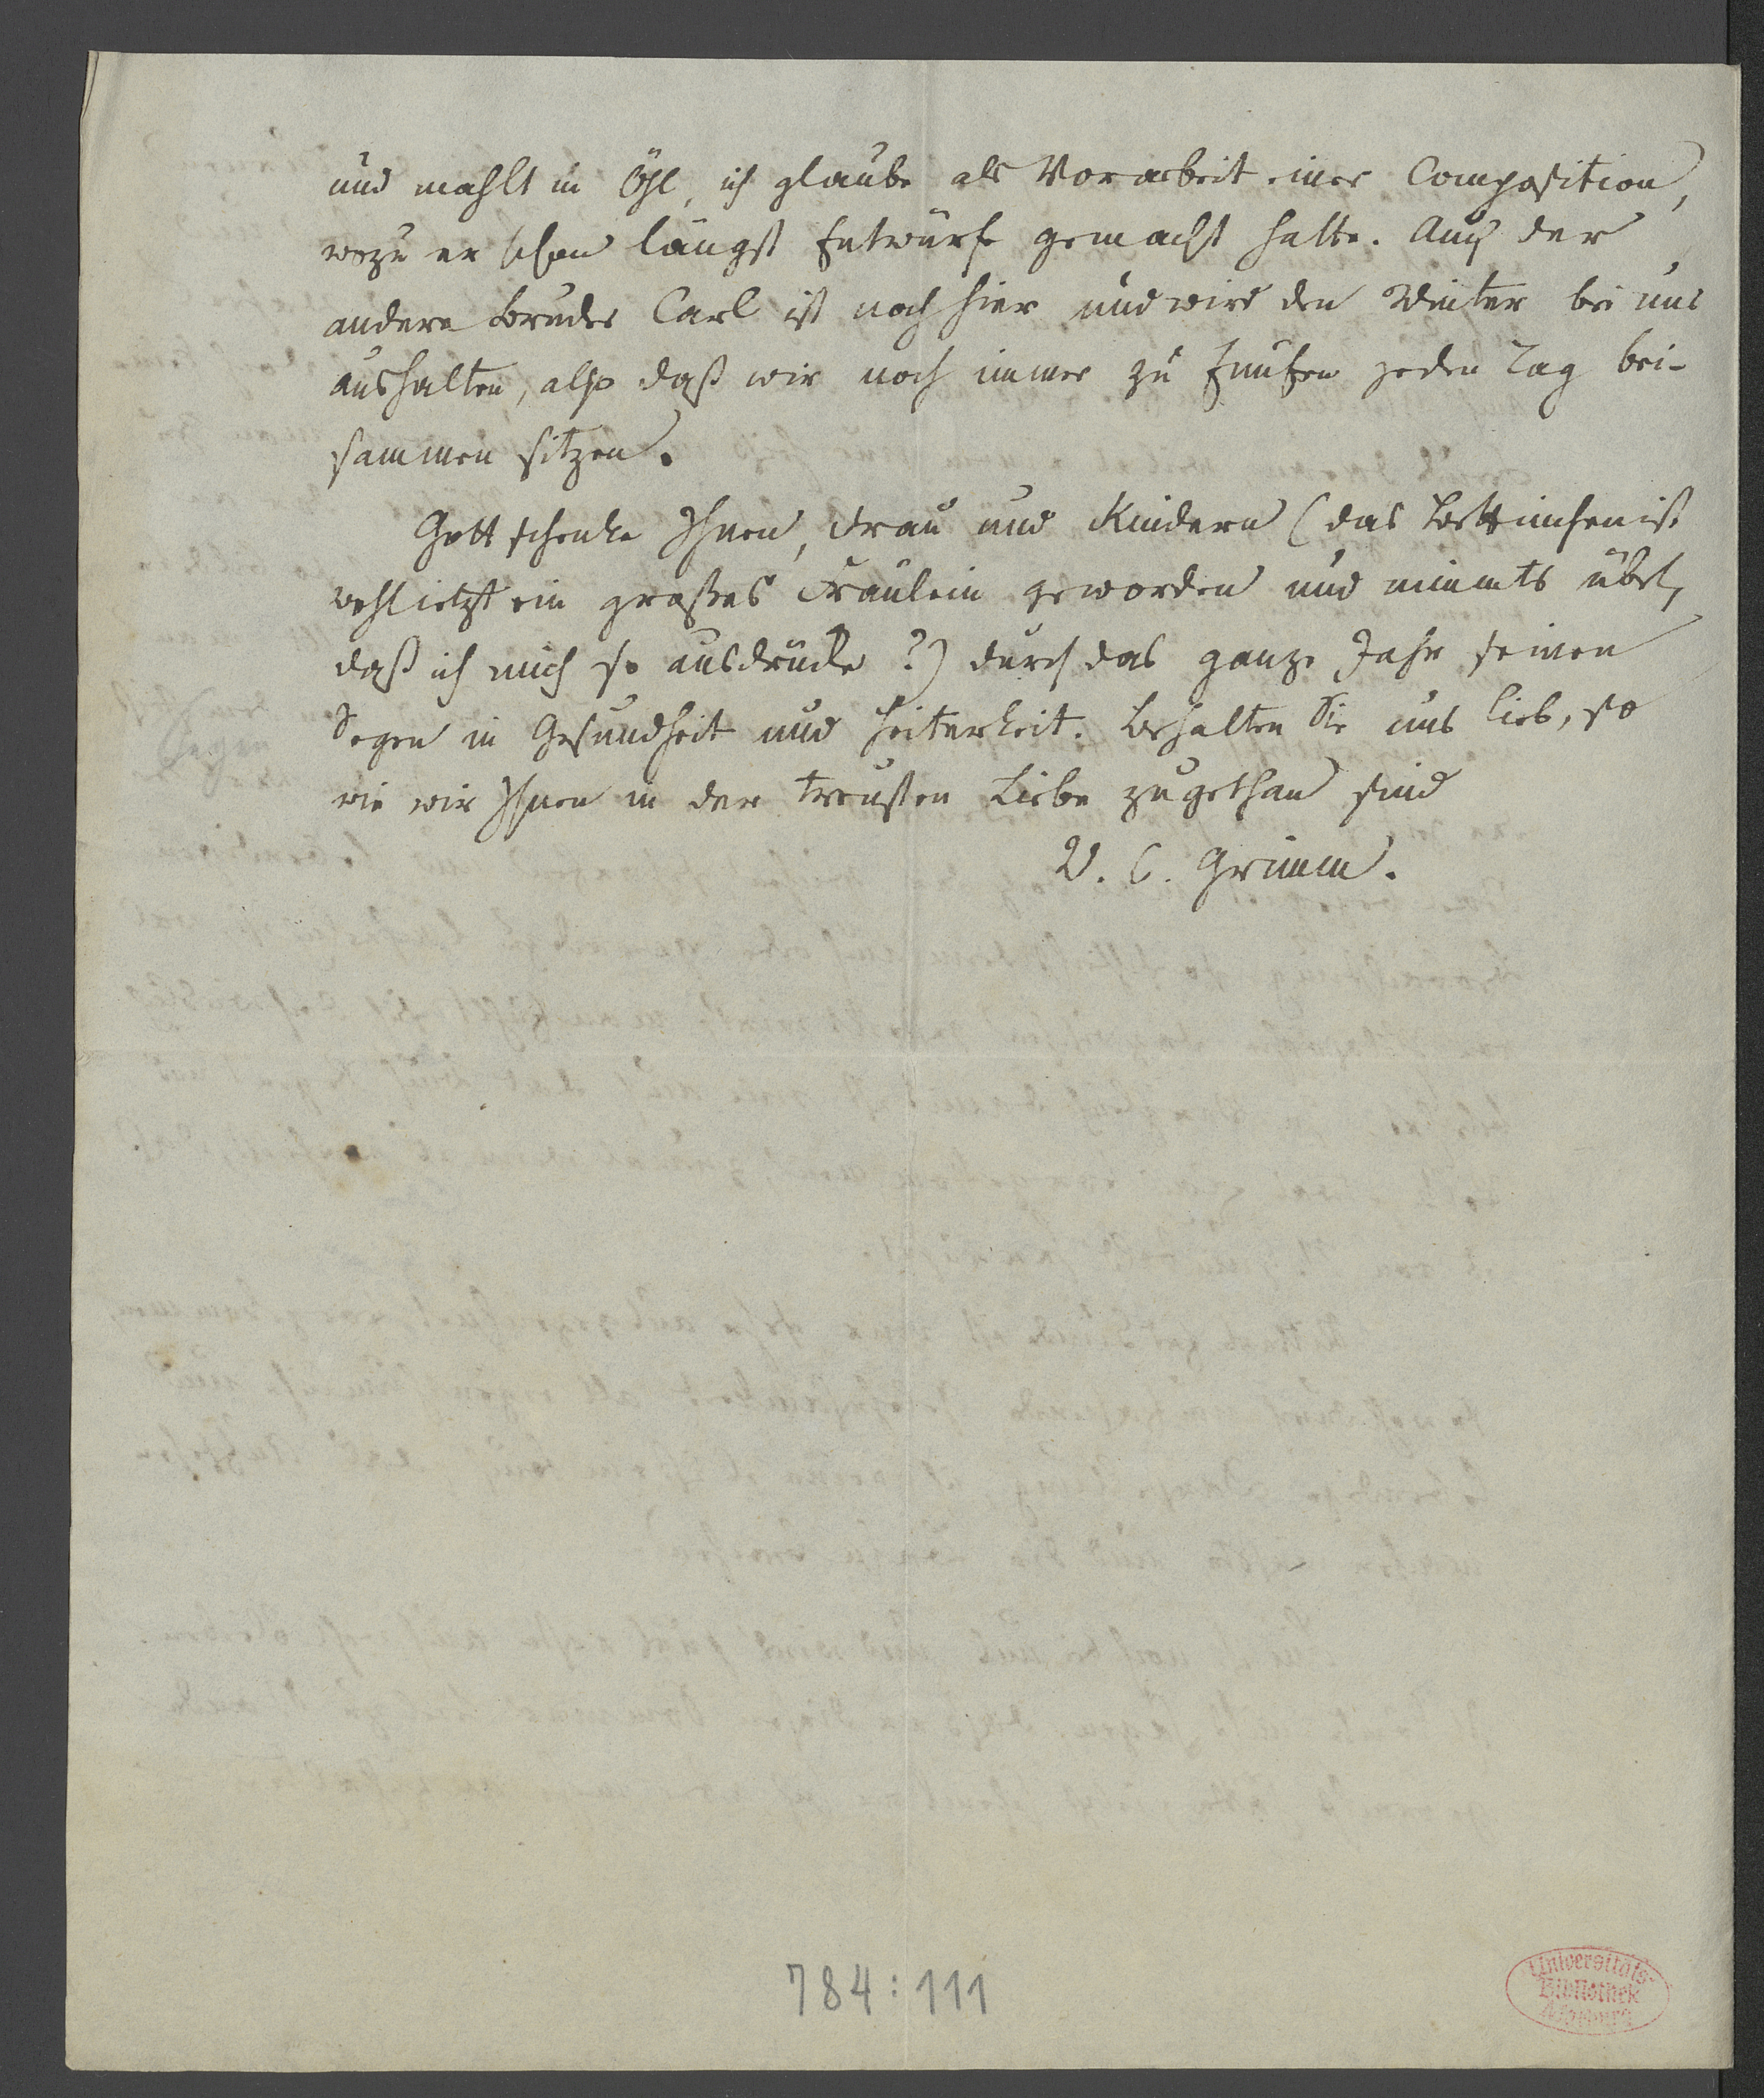 und mahlt in Öhl, ich glaube als Vorarbeit einer Composition,
wozu er schon längst Entwürfe gemacht hatte. Auch der
andere Bruder Carl ist noch hier und wird den Winter bei uns
aushalten, also daß wir noch immer zu Fünfen jeden Tag bei-
sammen sitzen.
Gott schenke Ihnen, Frau und Kindern (das Bettinchen ist
wohl ietzt ein großes Fräulein geworden und nimmts übel,
daß ich mich so ausdrücke?) durch das ganze Jahr seinen
Segen in Gesundheit und Heiterkeit. Behalten Sie uns lieb, so
wie wir Ihnen in der treusten Liebe zugethan sind
W. C. Grimm.
784:111
Universitäts-
Bibliothek
Marburg